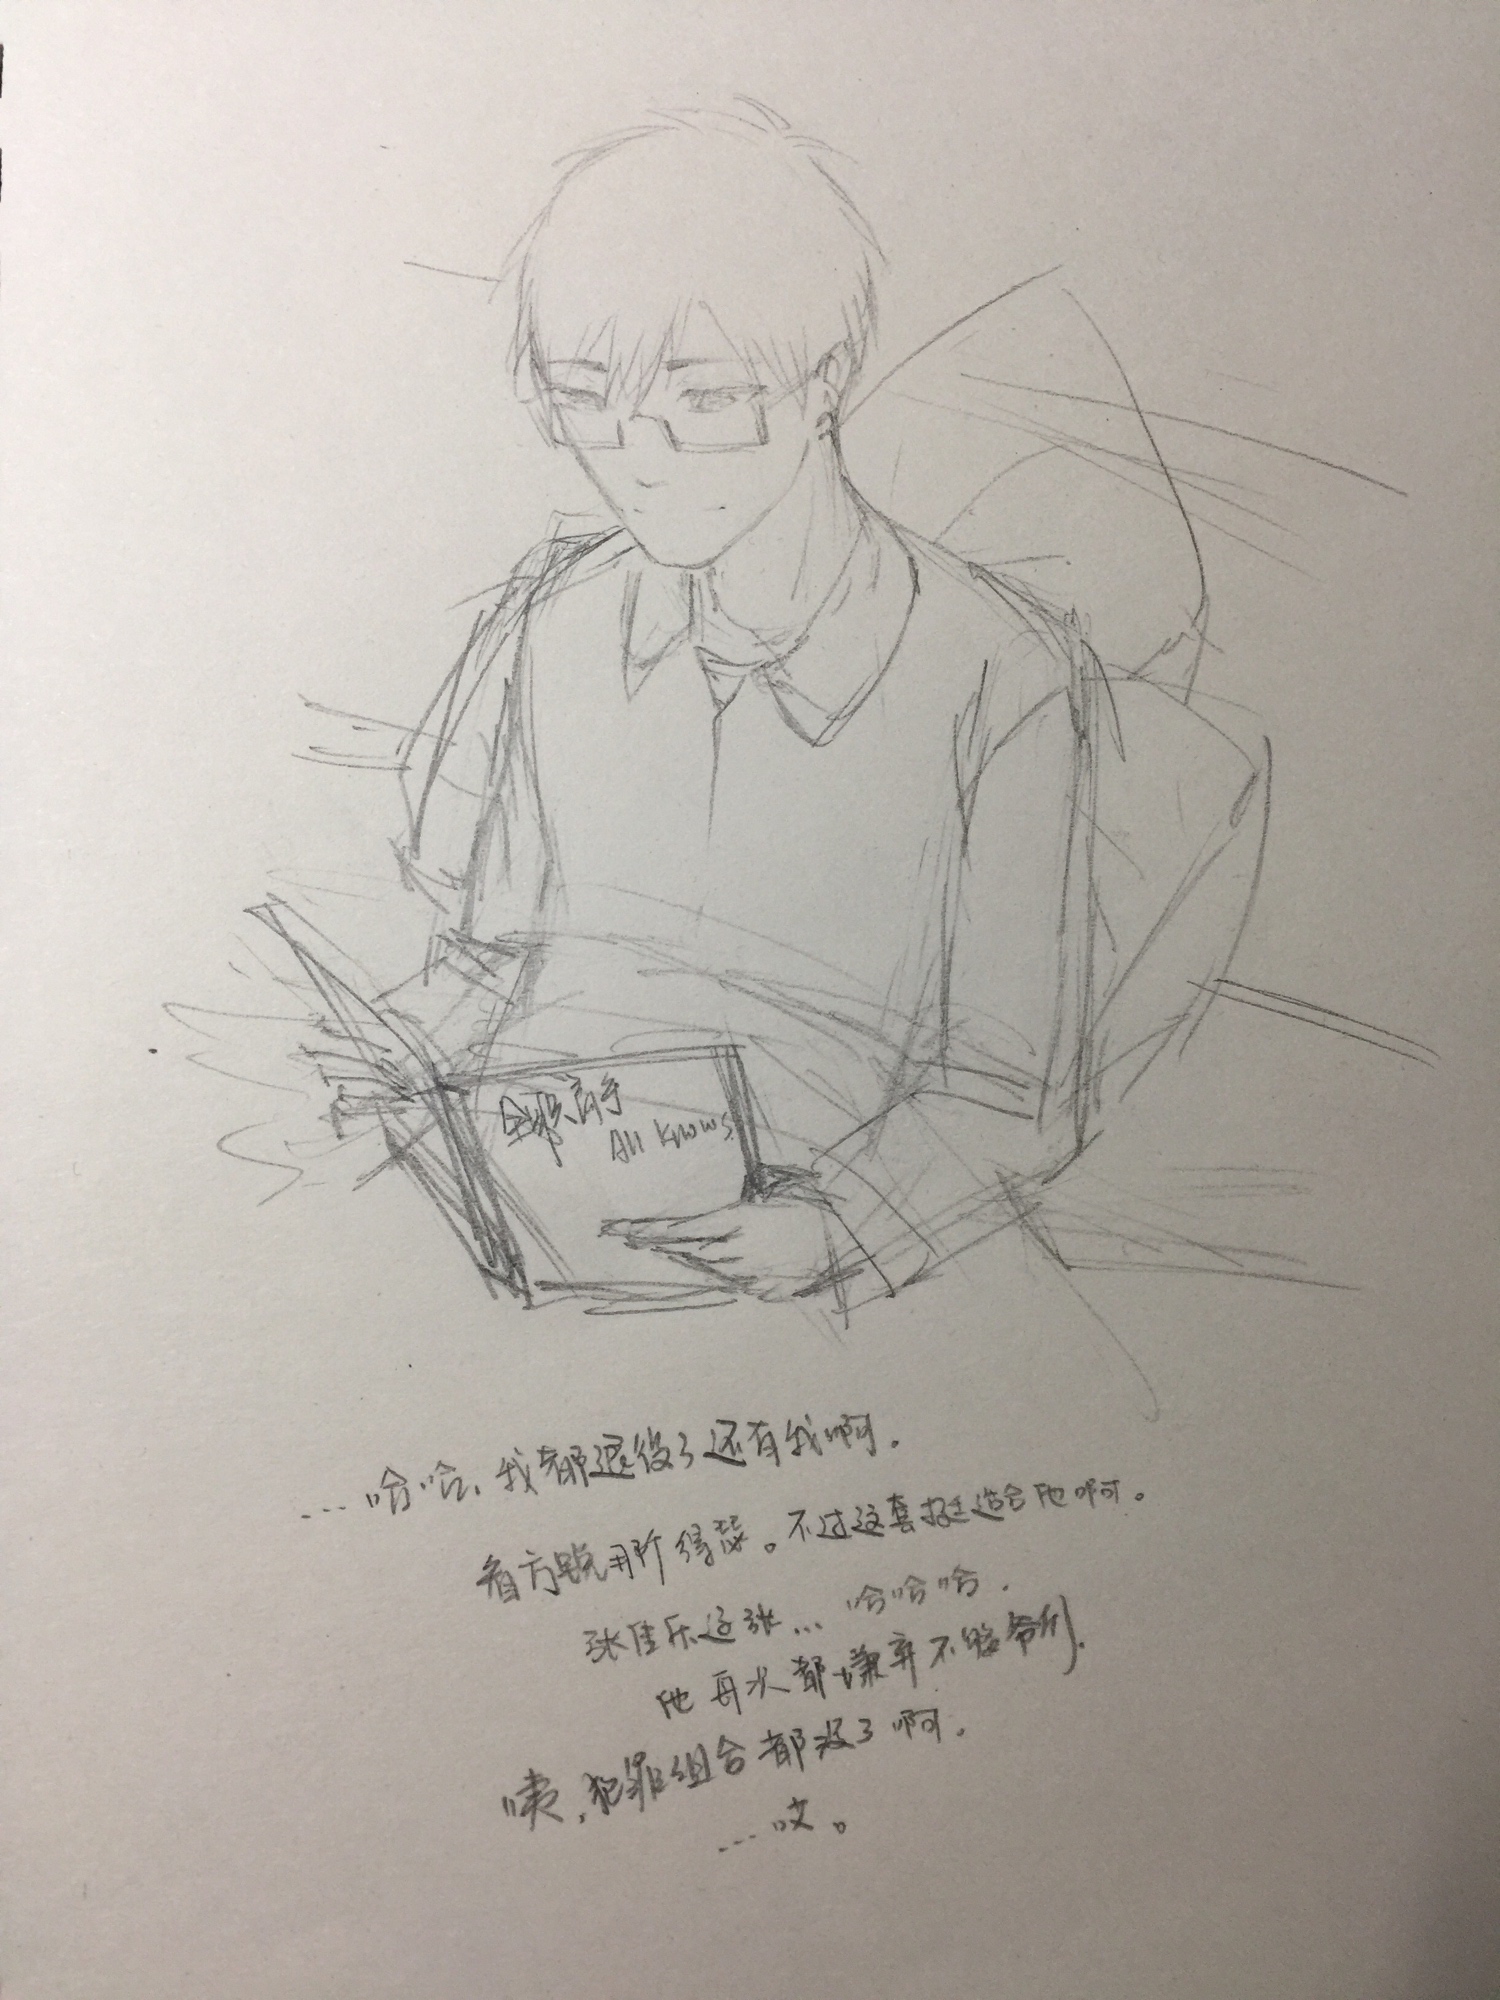 全职高手
All Knows
...哈哈，我都退役了还有我啊。
看方锐那得瑟。不过这套挺适合他啊。
张佳乐这张...哈哈哈.
他再次都嫌弃不够命.
咦，犯罪组合都没了啊。
...哎。